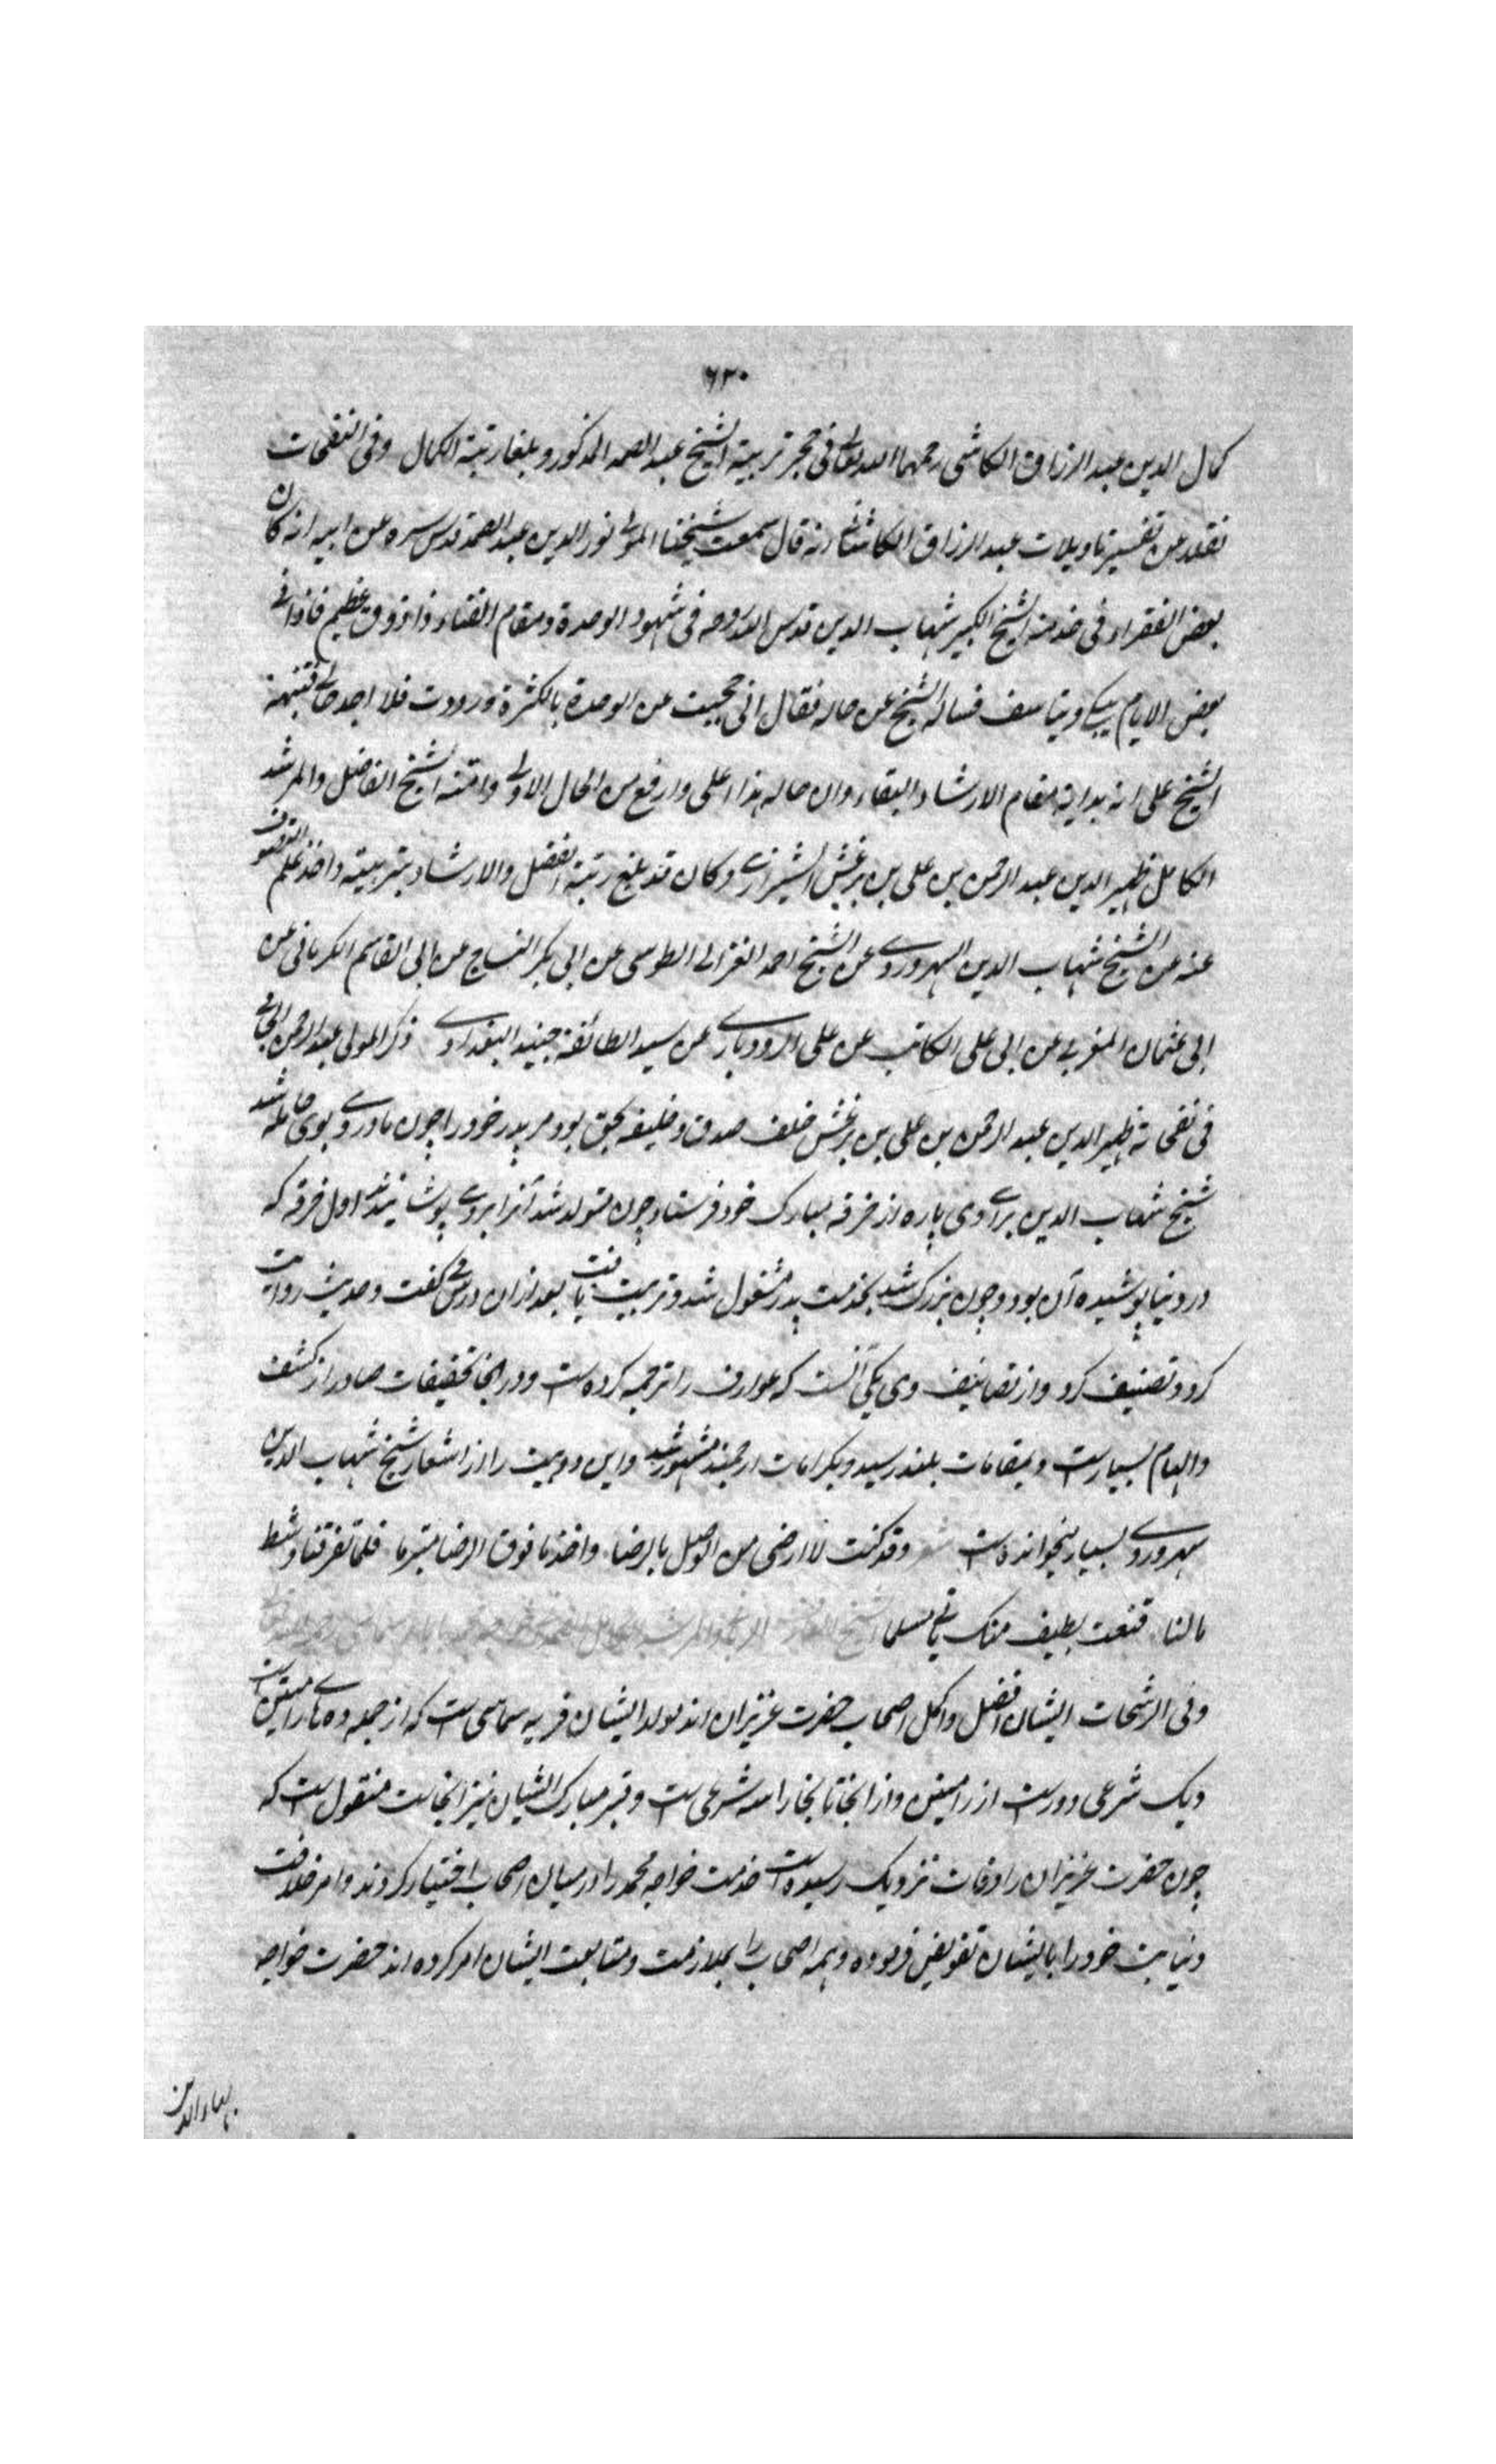 ۶۳۰
کمال الدین عبد الرزاق الکاشی رحمهما الله تعالی فی حجر تربیة الشیخ عبد الصمد المذکور و بلغا رتبة الکمال وفی النفحات
نقلا عن تفسیر تاویلات عبد الرزاق الکاشانی انه قال سمعت شیخنا المولی نور الدین عبد الصمد قدس سره عن ابیه انه کان
بعض الفقراء فی خدمة الشیخ الکبیر شهاب الدین قدس الله روحه فی شهود الوحدة ومقام الفناء ذا ذوق عظیم فاذا فی
بعض الایام یبکی ویتاسف فساله الشیخ عن حاله فقال انی حجبت عن الوحدة بالکثرة ورددت فلا اجد حالی فنبهه
الشیخ علی انه بدایة مقام الارشاد والبقاء وان حاله هذا اعلی وارفع من الحال الاولی وامنه الشیخ الفاضل والمرشد
الکامل ظهیر الدین عبد الرحمن بن علی بن بزغش الشیرازی وکان قد بلغ رتبة الفضل والارشاد بتربیته واخذ علم التصوف
عنه عن الشیخ شهاب الدین السهروردی عن الشیخ احمد الغزالی الطوسی عن ابی بکر النساج عن ابی القاسم الکرکانی عن
ابی عثمان المغربی عن ابی علی الکاتب عن علی الرودباری عن سید الطائفة جنید البغدادی ذکر المولی عبد الرحمن الجامی
فی نفحاته ظهیر الدین عبد الرحمن بن علی بن بزغش خلف صدق و خلیفه بحق بود مر پدر خود را چون مادر وی بوی حامله شد
شیخ شهاب الدین برای وی پاره از خرقه مبارک خود فرستاد چون متولد شد آنرا بروی پوشانیدند اول خرقه که
در دنیا پوشیده آن بود و چون بزرک شد بخدمت پدر مشغول شد و تربیت یافت بعد ازان درس کفت و حدیث روایت
کرد و تصنیف کرد و از تصانیف وی یکی آنست که عوارف را ترجمه کرده است و در انجا تحقیقات صادر از کشف
و الهام بسیارست و بمقامات بلند رسید و بکرامات ارجمند مشهور شد و این دو بیت را از اشعار شیخ شهاب الدین
سهروردی بسیار میخوانده است شعر وقد کنت لا ارضی من الوصل بالرضا واخذ ما فوق الرضا متبرما فلما تفرقنا وشط
مالنا قنعت بطیف منک یاتی مسلما
وفی الرشحات ایشان افضل و اکمل اصحاب حضرت عزیزان اند مولد ایشان قریه سماسی است که از جمله ده های رامیتن است
و یک شرعی دورست از رامیتن و از انجا تا بخارا سه شرعی است و قبر مبارک ایشان نیز انجاست منقول است که
چون حضرت عزیزان را وفات نزدیک رسیده است خدمت خواجه محمد را در میان اصحاب اختیار کردند و امر خلافت
و نیابت خود را بایشان تفویض فرموده و همه اصحاب را بملازمت و متابعت ایشان امر کرده اند حضرت خواجه
بهاء الدین